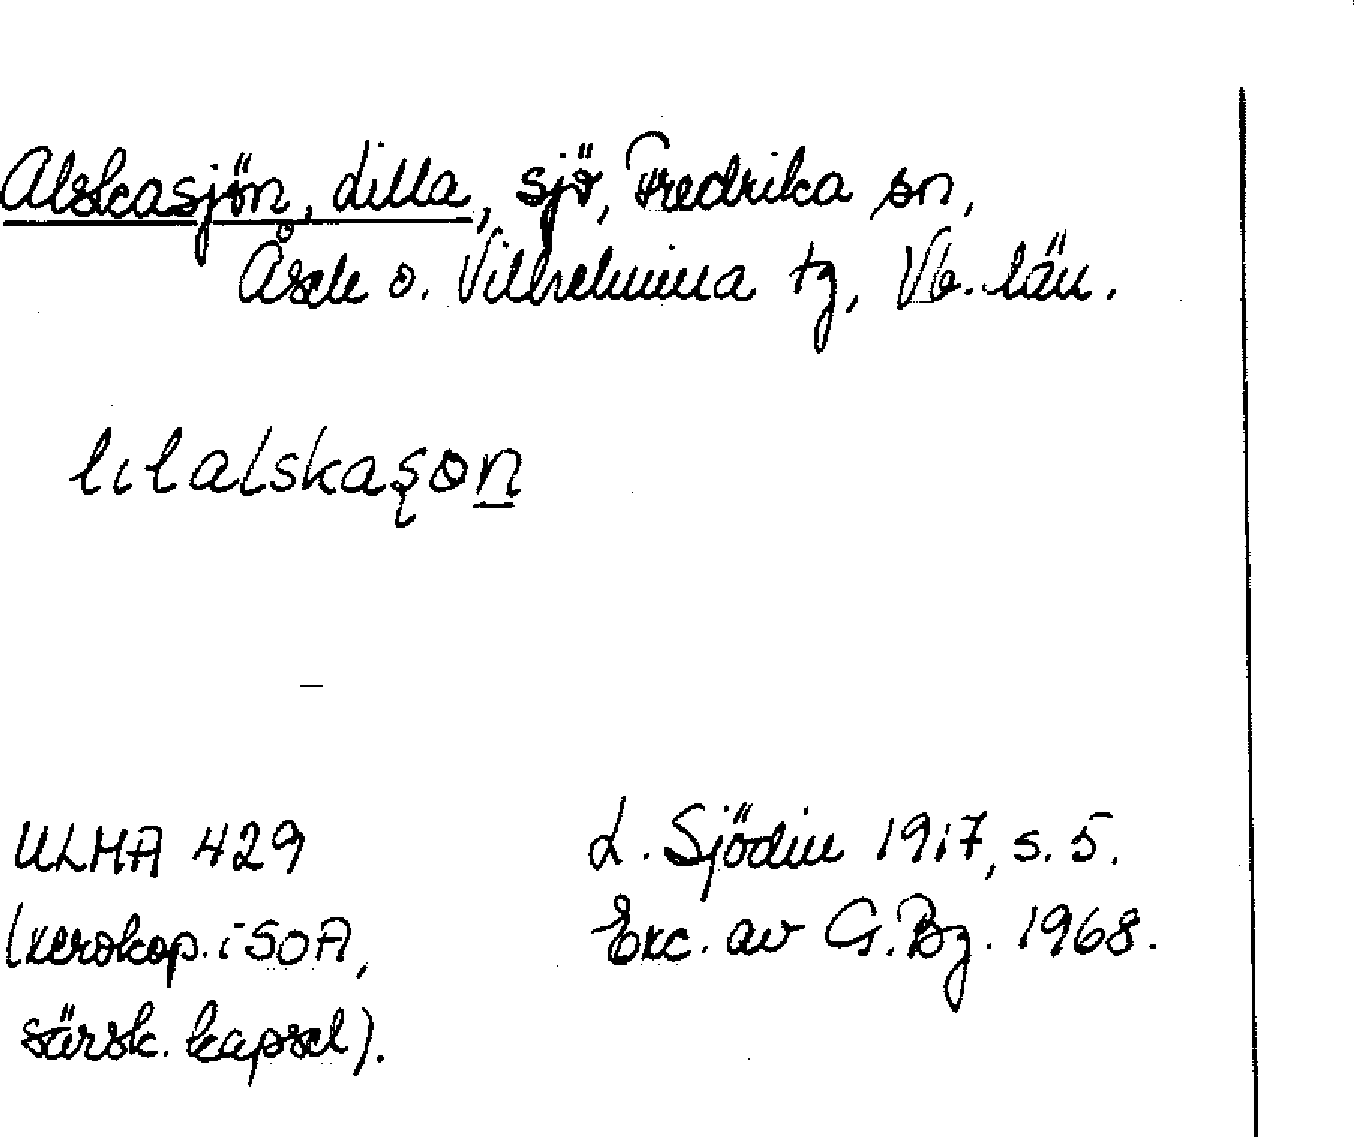 Alskasjön, Lilla, sjö, Fredrika sn,
Åsele o. Vilhelmina tg, Vb. län.
lılalskaşon
ULMA 429
(xerokop. i SOA,
särsk. kapsel).
L. Sjödin 1917, s. 5.
Exc. av G. Bg. 1968.